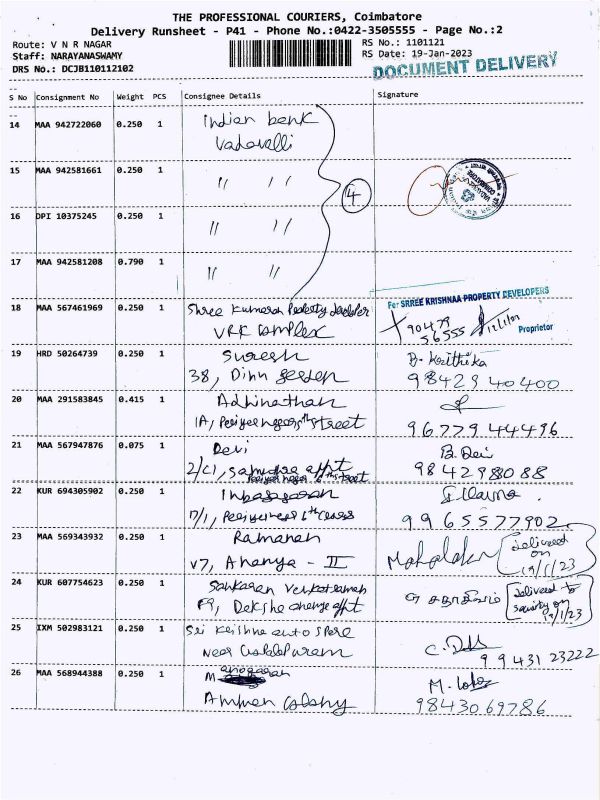 THE PROFESSIONAL COURIERS, Coimbatore
Delivery Runsheet - P41 - Phone No.:0422-3505555 - Page No.:2
Route: V N R NAGAR
Staff: NARAYANASWAMY
DRS No.: DCJB110112102
RS No.: 1101121
RS Date: 19-Jan-2023
DOCUMENT DELIVERY
S No Consignment No Weight PCS Consignee Details Signature
14 MAA 942722060 0.250 1 Indian bank
Vadavalli
15 MAA 942581661 0.250 1 " "
4
16 DPI 10375245 0.250 1 " "
17 MAA 942581208 0.790 1 " "
For SRREE KRISHNAA PROPERTY DEVELOPERS
18 MAA 567461969 0.250 1 Shree Kumaran
VRK Complex
90479
56555
Proprietor
19 HRD 50264739 0.250 1 Suresh B. Krithika
38, 98429 40400
20 MAA 291583845 0.415 1 Adhinathan
1A, street 96779 44496
21 MAA 567947876 0.075 1 Devi B. Devi
2/C1, appt 98429 88088
22 KUR 694305902 0.250 1
17/1, 6th cross 9965577902
23 MAA 569343932 0.250 1 Ramanan
V7, Ananya - III
Delivered
on
19/1/23
24 KUR 607754623 0.250 1 Sankaran Venkatraman
F9, appt
Delivered to
security on
19/1/23
25 IXM 502983121 0.250 1 Sri Krishna auto spare
Near 99431 23222
26 MAA 568944388 0.250 1 M
Amman Colony 98430 69786